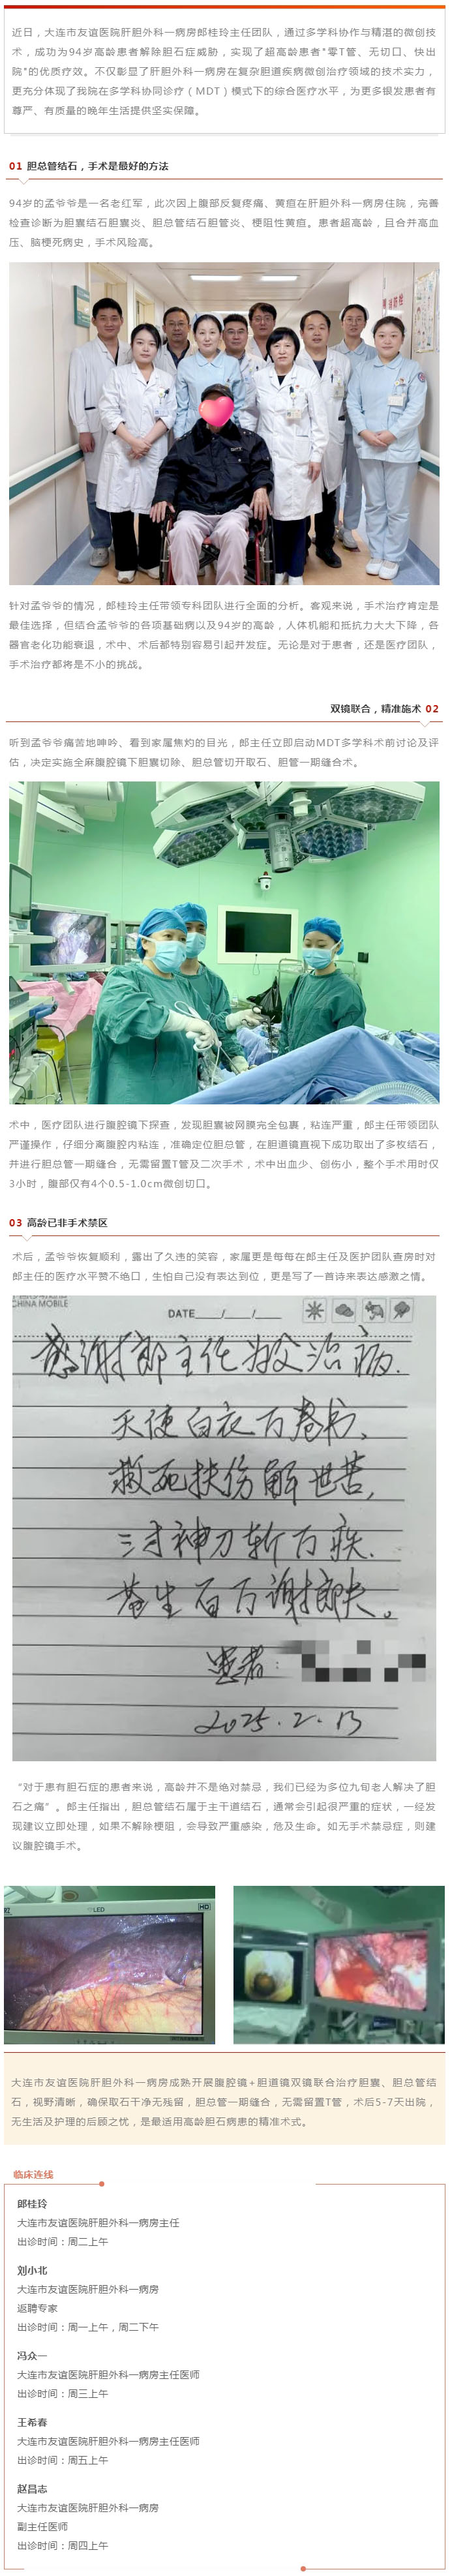 近日，大连市友谊医院肝胆外科一病房郎桂玲主任团队，通过多学科协作与精湛的微创技
术，成功为94岁高龄患者解除胆石症威胁，实现了超高龄患者"零T管、无切口、快出
院"的优质疗效。不仅彰显了肝胆外科一病房在复杂胆道疾病微创治疗领域的技术实力，
更充分体现了我院在多学科协同诊疗（MDT）模式下的综合医疗水平，为更多银发患者有
尊严、有质量的晚年生活提供坚实保障。
01 胆总管结石，手术是最好的方法
94岁的孟爷爷是一名老红军，此次因上腹部反复疼痛、黄疸在肝胆外科一病房住院，完善
检查诊断为胆囊结石胆囊炎、胆总管结石胆管炎、梗阻性黄疸。患者超高龄，且合并高血
压、脑梗死病史，手术风险高。
针对孟爷爷的情况，郎桂玲主任带领专科团队进行全面的分析。客观来说，手术治疗肯定是
最佳选择，但结合孟爷爷的各项基础病以及94岁的高龄，人体机能和抵抗力大大下降，各
器官老化功能衰退，术中、术后都特别容易引起并发症。无论是对于患者，还是医疗团队，
手术治疗都将是不小的挑战。
双镜联合，精准施术 02
听到孟爷爷痛苦地呻吟、看到家属焦灼的目光，郎主任立即启动MDT多学科术前讨论及评
估，决定实施全麻腹腔镜下胆囊切除、胆总管切开取石、胆管一期缝合术。
术中，医疗团队进行腹腔镜下探查，发现胆囊被网膜完全包裹，粘连严重，郎主任带领团队
严谨操作，仔细分离腹腔内粘连，准确定位胆总管，在胆道镜直视下成功取出了多枚结石，
并进行胆总管一期缝合，无需留置T管及二次手术，术中出血少、创伤小，整个手术用时仅
3小时，腹部仅有4个0.5-1.0cm微创切口。
03 高龄已非手术禁区
术后，孟爷爷恢复顺利，露出了久违的笑容，家属更是每每在郎主任及医护团队查房时对
郎主任的医疗水平赞不绝口，生怕自己没有表达到位，更是写了一首诗来表达感激之情。
CHINA MOBILE
DATE
感谢郎主任救父治病.
天使白衣百卷书,
救死扶伤解世苦,
三寸神刀斩百疾.
苍生百万谢郎扶。
患者:
2025.2.13
“对于患有胆石症的患者来说，高龄并不是绝对禁忌，我们已经为多位九旬老人解决了胆
石之痛”。郎主任指出，胆总管结石属于主干道结石，通常会引起很严重的症状，一经发
现建议立即处理，如果不解除梗阻，会导致严重感染，危及生命。如无手术禁忌症，则建
议腹腔镜手术。
LED
HD
大连市友谊医院肝胆外科一病房成熟开展腹腔镜+胆道镜双镜联合治疗胆囊、胆总管结
石，视野清晰，确保取石干净无残留，胆总管一期缝合，无需留置T管，术后5-7天出院，
无生活及护理的后顾之忧，是最适用高龄胆石病患的精准术式。
临床连线
郎桂玲
大连市友谊医院肝胆外科一病房主任
出诊时间：周二上午
刘小北
大连市友谊医院肝胆外科一病房
返聘专家
出诊时间：周一上午，周二下午
冯众一
大连市友谊医院肝胆外科一病房主任医师
出诊时间：周三上午
王希春
大连市友谊医院肝胆外科一病房主任医师
出诊时间：周五上午
赵昌志
大连市友谊医院肝胆外科一病房
副主任医师
出诊时间：周四上午